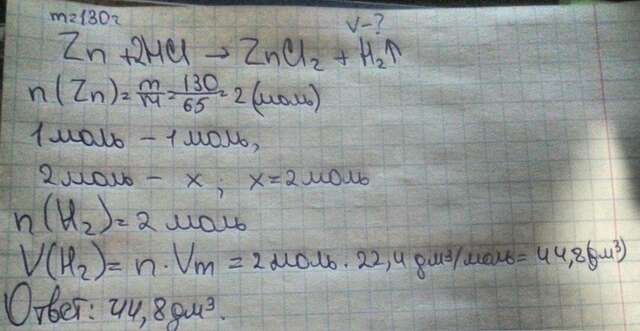 m=130г V-?
Zn + 2HCl → ZnCl₂ + H₂↑
n(Zn)=m/M=130/65=2(моль)
1моль – 1моль,
2моль – x; x=2моль
n(H₂)=2 моль
V(H₂)=n·Vm=2моль·22,4дм³/моль=44,8(дм³)
Ответ: 44,8дм³.